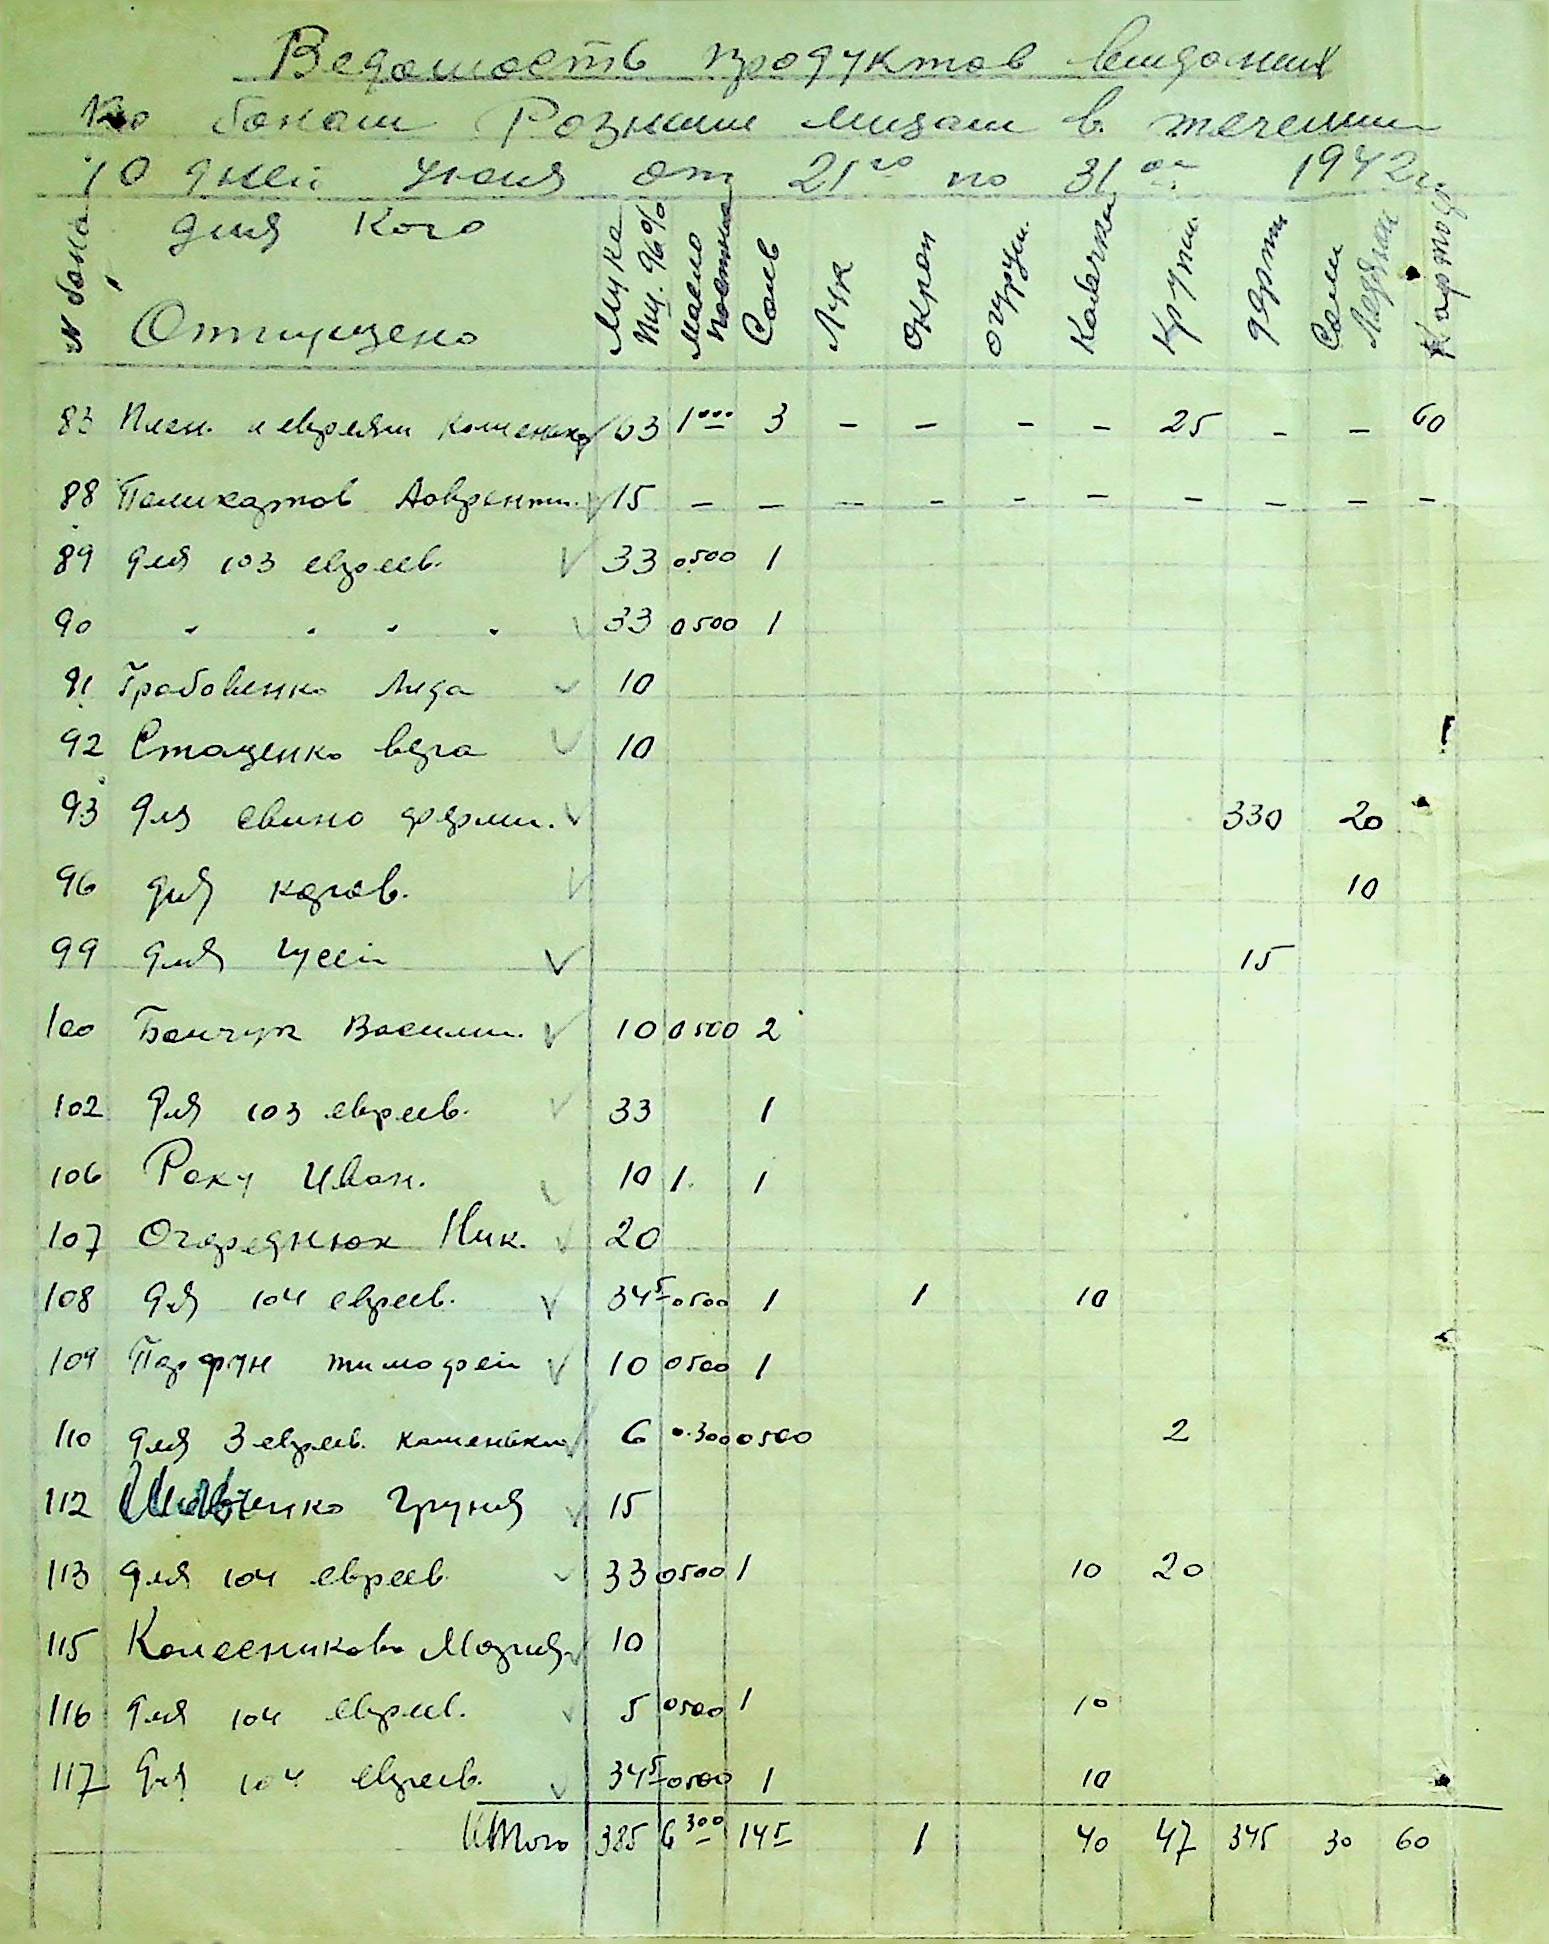 Ведомость продуктов выдоных
по бонам Розным лицам в течении
10 дней июля от 21го по 31ое 1942г
№ бона для Кого Отпущено Мука пш. 96% масло постное Соль Лук Окроп огурцы Кабачки Крупы дерти Соли Картоф
83 Плен. и евреям 63 1000 3 – – – – 25 – – 60
88 Поликарпов Лаврентий 15 – – – – – – – – – –
89 для 103 евреев. 33 0500 1
90 " " " " 33 0500 1
91 Грабовенко Лида 10
92 Стаценко вера 10
93 для свино фермы. 330 20
96 для коров. 10
99 для гусей 15
100 Василий. 10 0500 2
102 для 103 евреев. 33 1
106 Раку Иван. 10 1. 1
107 Очереднюк Ник. 20
108 для 104 евреев. 34 5 0500 1 1 10
109 Парфун тимофей 10 0500 1
110 для 3 евреев. каменьки 6 0.300 0500 2
112 Груня 15
113 для 104 евреев 33 0500 1 10 20
115 Колесникова Мария 10
116 для 104 евреев. 5 0500 1 10
117 для 104 евреев. 34 5 0500 1 10
Итого 385 6 300 14 5 1 40 47 345 30 60